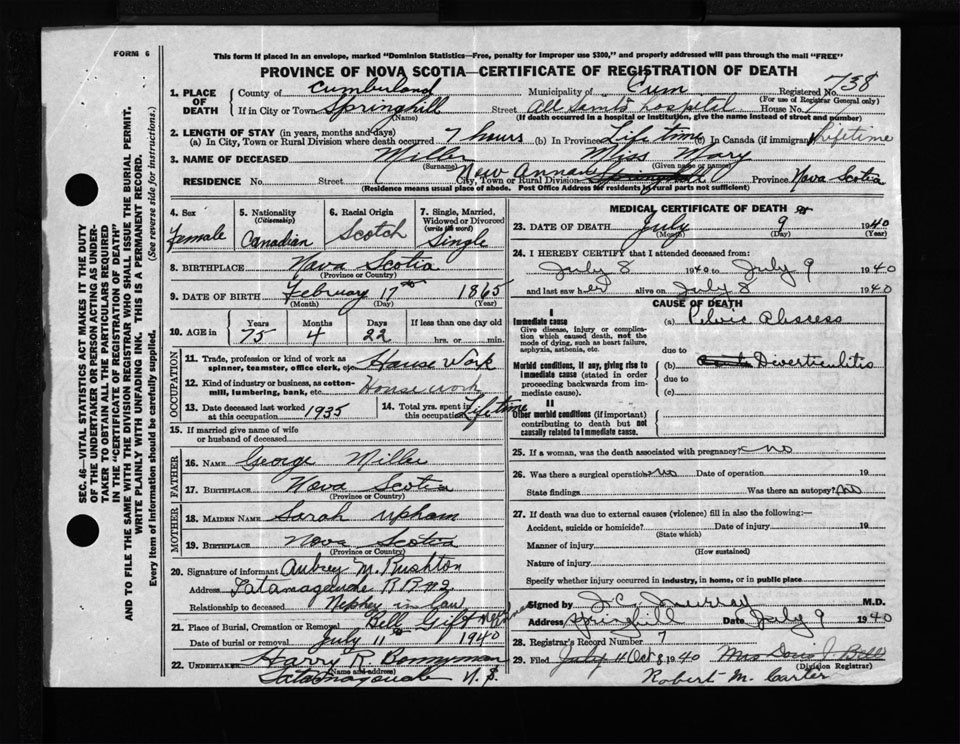 FORM 6
This form if placed in an envelope, marked "Dominion Statistics—Free, penalty for improper use $300," and properly addressed will pass through the mail "FREE"
PROVINCE OF NOVA SCOTIA—CERTIFICATE OF REGISTRATION OF DEATH
738
1. PLACE OF DEATH
County of Cumberland Municipality of Cum Registered No.
(For use of Registrar General only)
If in City or Town Springhill Street All Saints Hospital House No.
(Name) (If death occurred in a hospital or institution, give the name instead of street and number)
2. LENGTH OF STAY (in years, months and days)
(a) In City, Town or Rural Division where death occurred 7 hours (b) In Province Life time (c) In Canada (if immigrant) Lifetime
3. NAME OF DECEASED Miller Miss Mary
(Surname) (Given name or names)
RESIDENCE No. Street City, Town or Rural Division New Annan Springhill Province Nova Scotia
(Residence means usual place of abode. Post Office Address for residents in rural parts not sufficient)
4. Sex Female
5. Nationality (Citizenship) Canadian
6. Racial Origin Scotch
7. Single, Married, Widowed or Divorced (write the word) Single
8. BIRTHPLACE Nova Scotia
(Province or Country)
9. DATE OF BIRTH February 17th 1865
(Month) (Day) (Year)
10. AGE in Years 75 Months 4 Days 22 If less than one day old
hrs. or min.
OCCUPATION
11. Trade, profession or kind of work as spinner, teamster, office clerk, etc. House Work
12. Kind of industry or business, as cotton-mill, lumbering, bank, etc. House work
13. Date deceased last worked at this occupation 1935
14. Total yrs. spent in this occupation Lifetime
15. If married give name of wife or husband of deceased
FATHER
16. NAME George Miller
17. BIRTHPLACE Nova Scotia
(Province or Country)
MOTHER
18. MAIDEN NAME Sarah Upham
19. BIRTHPLACE Nova Scotia
(Province or Country)
20. Signature of informant Aubrey M. Rushton
Address Tatamagouche R R No 2
Relationship to deceased Nephew in law
21. Place of Burial, Cremation or Removal Bell Gift New Annan
Date of burial or removal July 11th 1940
22. UNDERTAKER Harry R. Bonnyman
(Name and address)
Tatamagouche N. S.
MEDICAL CERTIFICATE OF DEATH
23. DATE OF DEATH July 9 1940
(Month) (Day) (Year)
24. I HEREBY CERTIFY that I attended deceased from:
July 8 1940 to July 9 1940
and last saw her alive on July 8 1940
CAUSE OF DEATH
I
Immediate cause
Give disease, injury or complication which caused death, not the mode of dying, such as heart failure, asphyxia, asthenia, etc.
(a) Pelvic Abscess
due to
Morbid conditions, if any, giving rise to immediate cause (stated in order proceeding backwards from immediate cause)
(b) Diverticulitis
due to
(c)
II
Other morbid conditions (if important) contributing to death but not causally related to immediate cause.
25. If a woman, was the death associated with pregnancy? no
26. Was there a surgical operation no Date of operation 19
State findings Was there an autopsy? no
27. If death was due to external causes (violence) fill in also the following:—
Accident, suicide or homicide? Date of injury 19
(State which)
Manner of injury
(How sustained)
Nature of injury
Specify whether injury occurred in industry, in homs, or in public place
Signed by J. C. Murray M.D.
Address Springhill Date July 9 1940
28. Registrar's Record Number 7
29. Filed July 11 Oct 8 1940 Mrs Doris J. Bell
(Division Registrar)
Robert M. Carter
SEC. 46—VITAL STATISTICS ACT MAKES IT THE DUTY
OF THE UNDERTAKER OR PERSON ACTING AS UNDERTAKER TO OBTAIN ALL THE PARTICULARS REQUIRED
IN THE "CERTIFICATE OF REGISTRATION OF DEATH"
AND TO FILE THE SAME WITH THE DIVISION REGISTRAR WHO SHALL ISSUE THE BURIAL PERMIT.
WRITE PLAINLY WITH UNFADING INK. THIS IS A PERMANENT RECORD.
Every item of information should be carefully supplied. (See reverse side for instructions.)